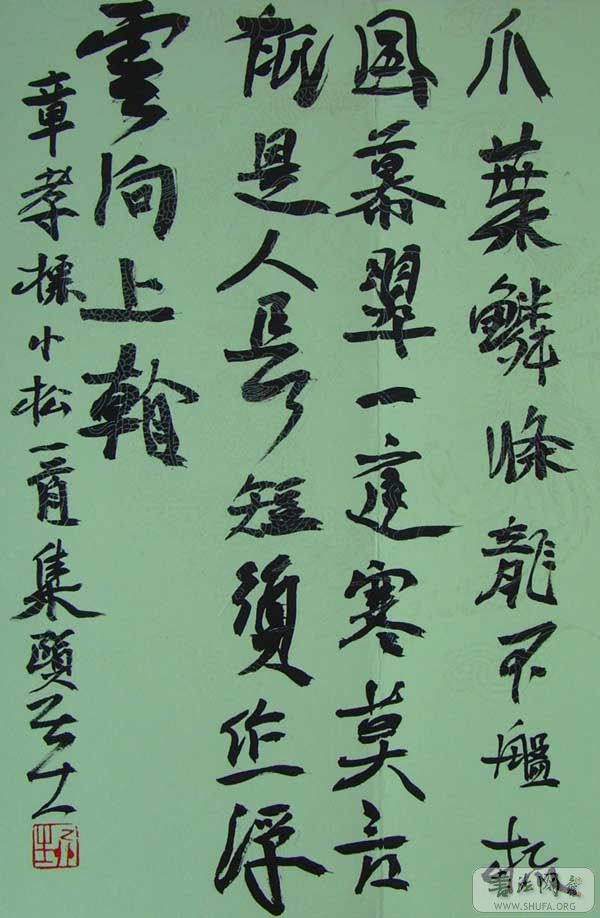 爪葉鱗條龍不盤梳
風幕翠一庭寒莫言
秖是人長短須作浮
雲向上看
章孝標小松一首集頤居士
WWW.SHUFA.ORG